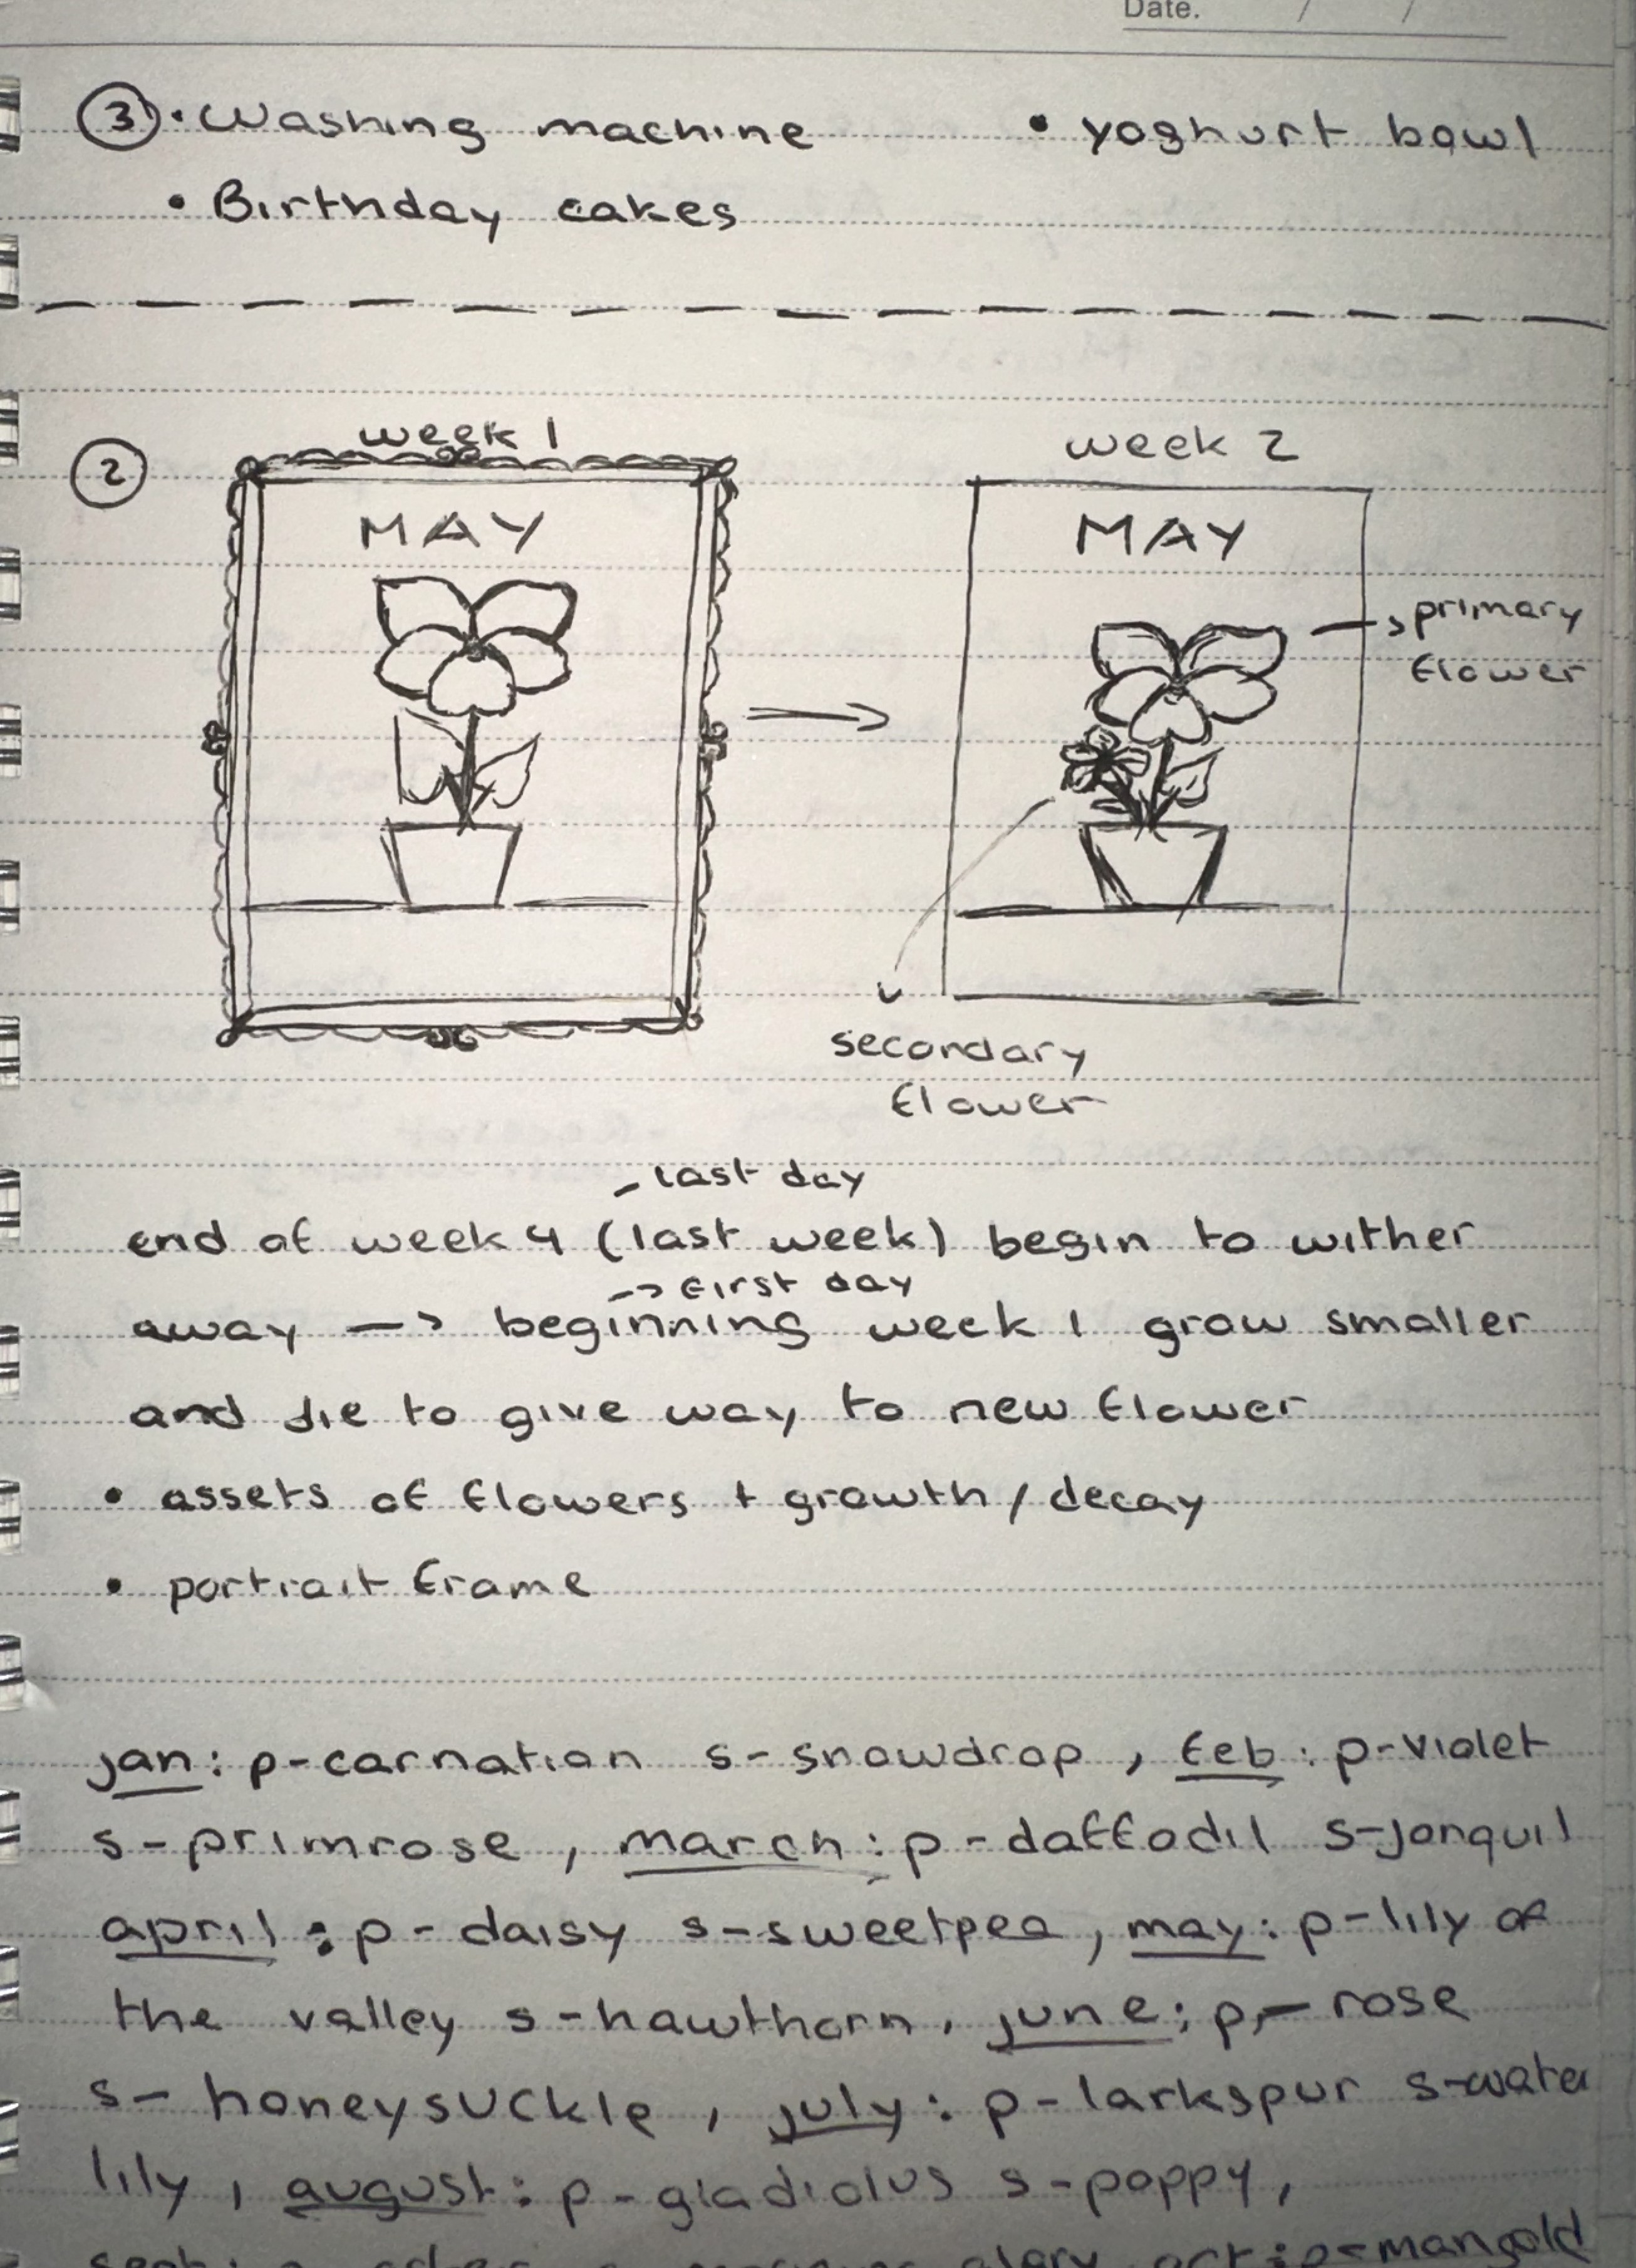 Date. / /
③ • Washing machine • yoghurt bowl
• Birthday cakes
② week 1 week 2
MAY MAY
→ primary
flower
secondary
flower
- last day
end of week 4 (last week) begin to wither
→ first day
away → beginning week 1 grow smaller
and die to give way to new flower
• assets of flowers + growth / decay
• portrait frame
jan: p-carnation s-snowdrop, feb: p-violet
s-primrose, march: p-daffodil s-jonquil
april: p-daisy s-sweetpea, may: p-lily of
the valley s-hawthorn, june: p-rose
s-honeysuckle, july: p-larkspur s-water
lily, august: p-gladiolus s-poppy,
glory oct: p-marigold